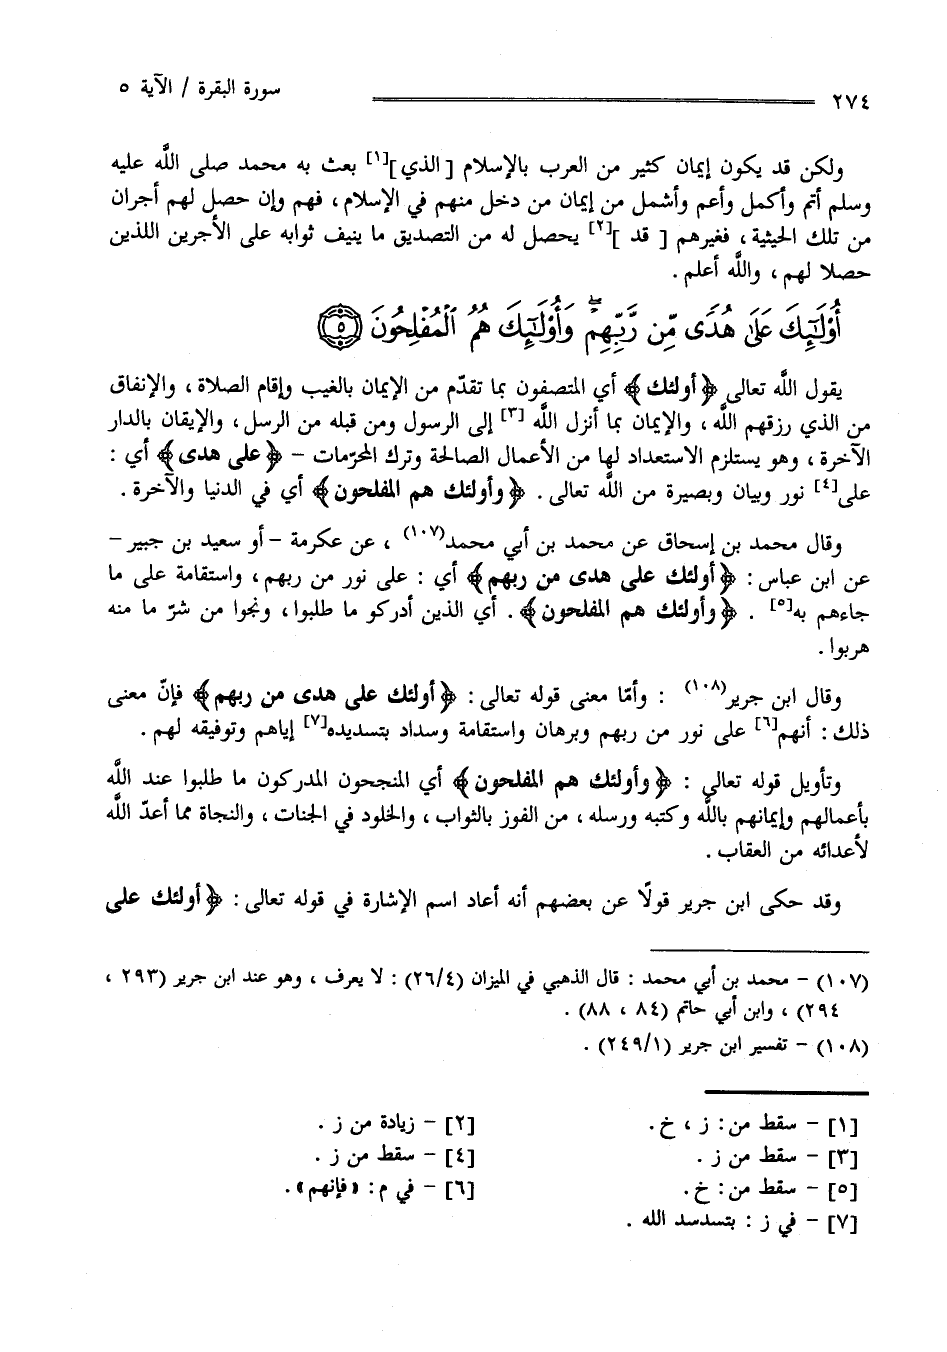 ٢٧٤ سورة البقرة / الآية ٥
ولكن قد يكون إيمان كثير من العرب بالإسلام [ الذي ][١] بعث به محمد صلى الله عليه
وسلم أتم وأكمل وأعم وأشمل من إيمان من دخل منهم في الإسلام ، فهم وإن حصل لهم أجران
من تلك الحيثية ، فغيرهم [ قد ][٢] يحصل له من التصديق ما ينيف ثوابه على الأجرين اللذين
حصلا لهم ، واللَّه أعلم .
أُوْلَٰٓئِكَ عَلَىٰ هُدًى مِّن رَّبِّهِمْۖ وَأُوْلَٰٓئِكَ هُمُ ٱلْمُفْلِحُونَ ۝٥
يقول اللَّه تعالى ﴿ أولئك ﴾ أي المتصفون بما تقدّم من الإيمان بالغيب وإقام الصلاة ، والإنفاق
من الذي رزقهم اللَّه ، والإيمان بما أنزل اللَّه [٣] إلى الرسول ومن قبله من الرسل ، والإيقان بالدار
الآخرة ، وهو يستلزم الاستعداد لها من الأعمال الصالحة وترك المحرّمات – ﴿ على هدى ﴾ أي :
على[٤] نور وبيان وبصيرة من اللَّه تعالى . ﴿ وأولئك هم المفلحون ﴾ أي في الدنيا والآخرة .
وقال محمد بن إسحاق عن محمد بن أبي محمد(١٠٧) ، عن عكرمة – أو سعيد بن جبير –
عن ابن عباس : ﴿ أولئك على هدى من ربهم ﴾ أي : على نور من ربهم ، واستقامة على ما
جاءهم به[٥] . ﴿ وأولئك هم المفلحون ﴾ . أي الذين أدركو ما طلبوا ، ونجوا من شرّ ما منه
هربوا .
وقال ابن جرير(١٠٨) : وأمّا معنى قوله تعالى : ﴿ أولئك على هدى من ربهم ﴾ فإنّ معنى
ذلك : أنهم[٦] على نور من ربهم وبرهان واستقامة وسداد بتسديده[٧] إياهم وتوفيقه لهم .
وتأويل قوله تعالى : ﴿ وأولئك هم المفلحون ﴾ أي المنجحون المدركون ما طلبوا عند اللَّه
بأعمالهم وإيمانهم باللَّه وكتبه ورسله ، من الفوز بالثواب ، والخلود في الجنات ، والنجاة مما أعدّ اللَّه
لأعدائه من العقاب .
وقد حكى ابن جرير قولًا عن بعضهم أنه أعاد اسم الإشارة في قوله تعالى : ﴿ أولئك على
(١٠٧) – محمد بن أبي محمد : قال الذهبي في الميزان (٢٦/٤) : لا يعرف ، وهو عند ابن جرير (٢٩٣ ،
٢٩٤) ، وابن أبي حاتم (٨٤ ، ٨٨) .
(١٠٨) – تفسير ابن جرير (٢٤٩/١) .
[١] – سقط من : ز ، خ . [٢] – زيادة من ز .
[٣] – سقط من ز . [٤] – سقط من ز .
[٥] – سقط من : خ . [٦] – في م : «فإنهم» .
[٧] – في ز : بتسدسد الله .